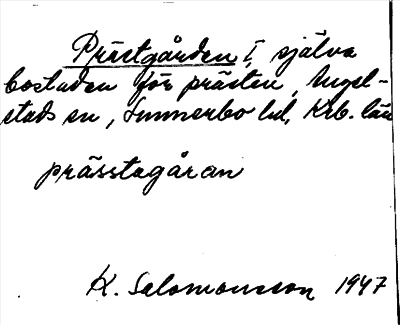 Prästgården I, själva
bostaden för prästen, Angel-
stads sn, Sunnerbo hd, Krb. län
prässtagåran
K. Salomonsson 1947